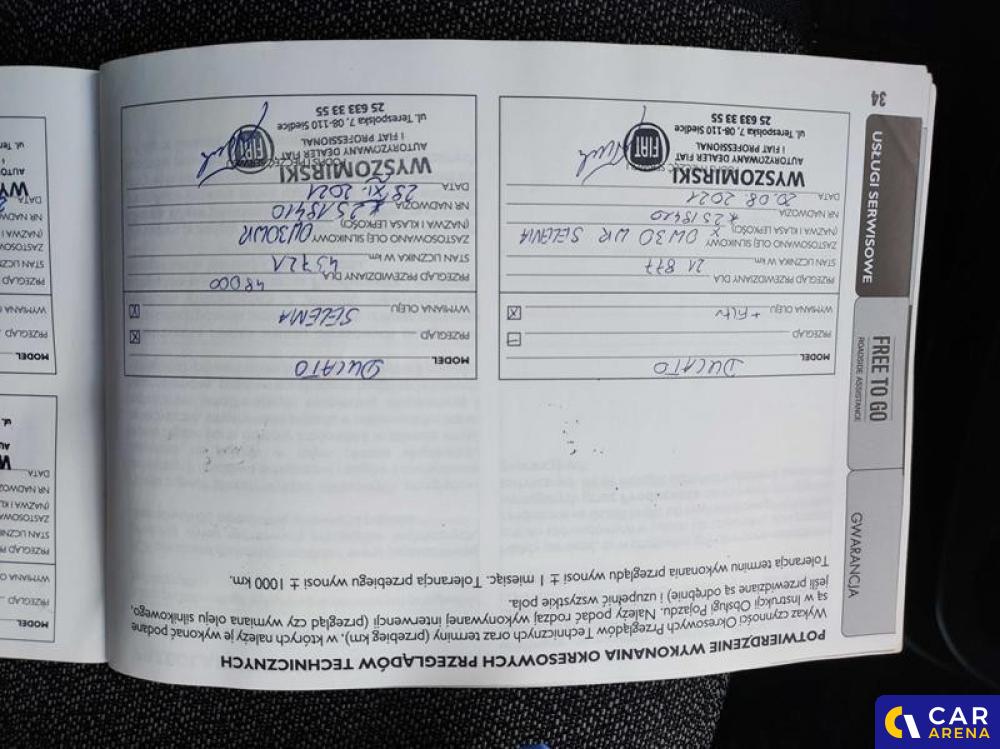 POTWIERDZENIE WYKONANIA OKRESOWYCH PRZEGLĄDÓW TECHNICZNYCH
Wykaz czynności Okresowych Przeglądów Technicznych oraz terminy (przebieg km), w których należy je wykonać podane
są w Instrukcji Obsługi Pojazdu. Należy podać rodzaj wykonywanej interwencji (przegląd czy wymiana oleju silnikowego,
jeśli przewidziane są odrębnie) i uzupełnić wszystkie pola.
Tolerancja terminu wykonania przeglądu wynosi ± 1 miesiąc. Tolerancja przebiegu wynosi ± 1000 km.
MODEL DUCATO
PRZEGLĄD
WYMIANA OLEJU + FILTR X
PRZEGLĄD PRZEWIDZIANY DLA
STAN LICZNIKA W KM 21 877
ZASTOSOWANO OLEJ SILNIKOWY
(NAZWA I KLASA LEPKOŚCI) 0W30 WR SELENIA
NR NADWOZIA 2S18410
DATA 20.08.2021
WYSZOMIRSKI
AUTORYZOWANY DEALER FIAT
I FIAT PROFESSIONAL
ul. Terespolska 7, 08-110 Siedlce
25 633 33 55
FIAT
MODEL DUCATO
PRZEGLĄD X
WYMIANA OLEJU SELENIA X
PRZEGLĄD PRZEWIDZIANY DLA 48000
STAN LICZNIKA W KM 43721
ZASTOSOWANO OLEJ SILNIKOWY
(NAZWA I KLASA LEPKOŚCI) 0W30WR
NR NADWOZIA 2S18410
DATA 29.XI.2021
WYSZOMIRSKI
AUTORYZOWANY DEALER FIAT
I FIAT PROFESSIONAL
ul. Terespolska 7, 08-110 Siedlce
25 633 33 55
FIAT
GWARANCJA
FREE TO GO
ROADSIDE ASSISTANCE
USŁUGI SERWISOWE
34
MODEL
PRZEGLĄD
WYMIANA O
PRZEGLĄD P
STAN LICZNIK
ZASTOSOWA
(NAZWA I KL
NR NADWOZ
DATA
MODEL
PRZEGLĄD
WYMIANA
PRZEGLĄD
STAN LICZN
ZASTOSOW
(NAZWA I
NR NADW
DATA
CAR
ARENA